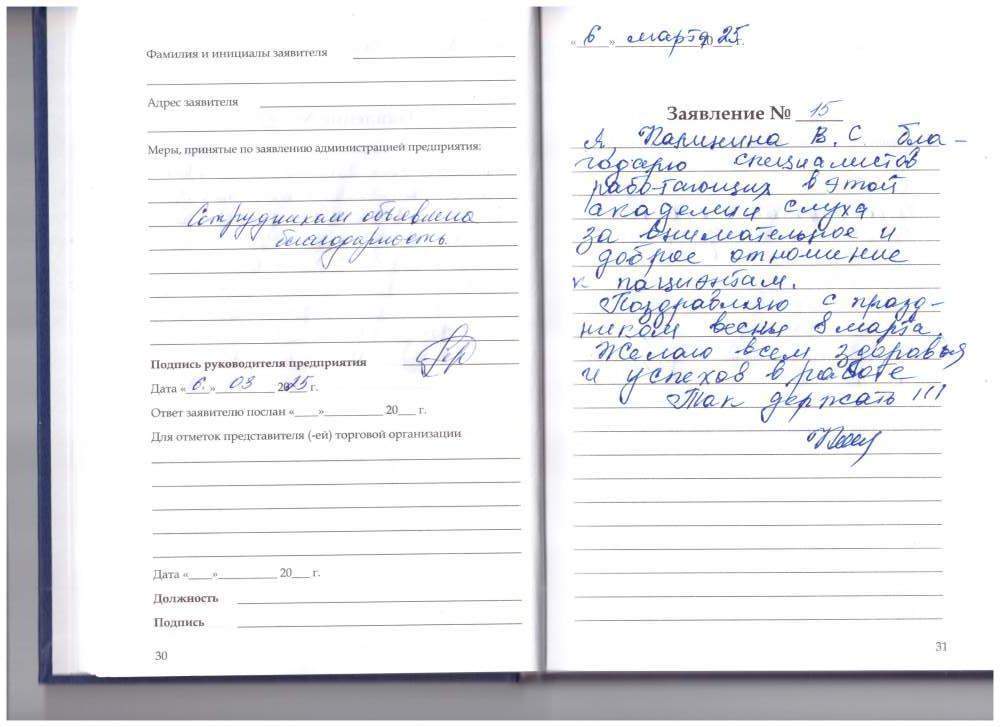 Фамилия и инициалы заявителя
Адрес заявителя
Меры, принятые по заявлению администрацией предприятия:
Сотрудникам объявлена
благодарность.
Подпись руководителя предприятия
Дата «6.» 03 2025 г.
Ответ заявителю послан «____»__________ 20___ г.
Для отметок представителя (-ей) торговой организации
Дата «____»__________ 20___ г.
Должность
Подпись
30
«6» марта 2025 г.
Заявление № 15
Я, В. С. бла-
годарю специалистов
работающих в этой
академии слуха
за внимательное и
доброе отношение
к пациентам.
Поздравляю с празд-
ником весны 8 марта.
Желаю всем здоровья
и успехов в работе
Так держать!!!
31